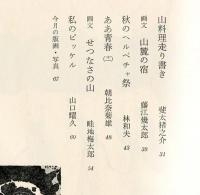 山料理走り書き 柴太猪之介 31
画文 山襞の宿 藤江幾太郎 38
秋のヘルペチャ祭 林和夫 43
ああ青春(二) 朝比奈菊雄 48
画文 せつなさの山 畦地梅太郎 54
私のピッケル 山口耀久 60
今月の版画・写真 67